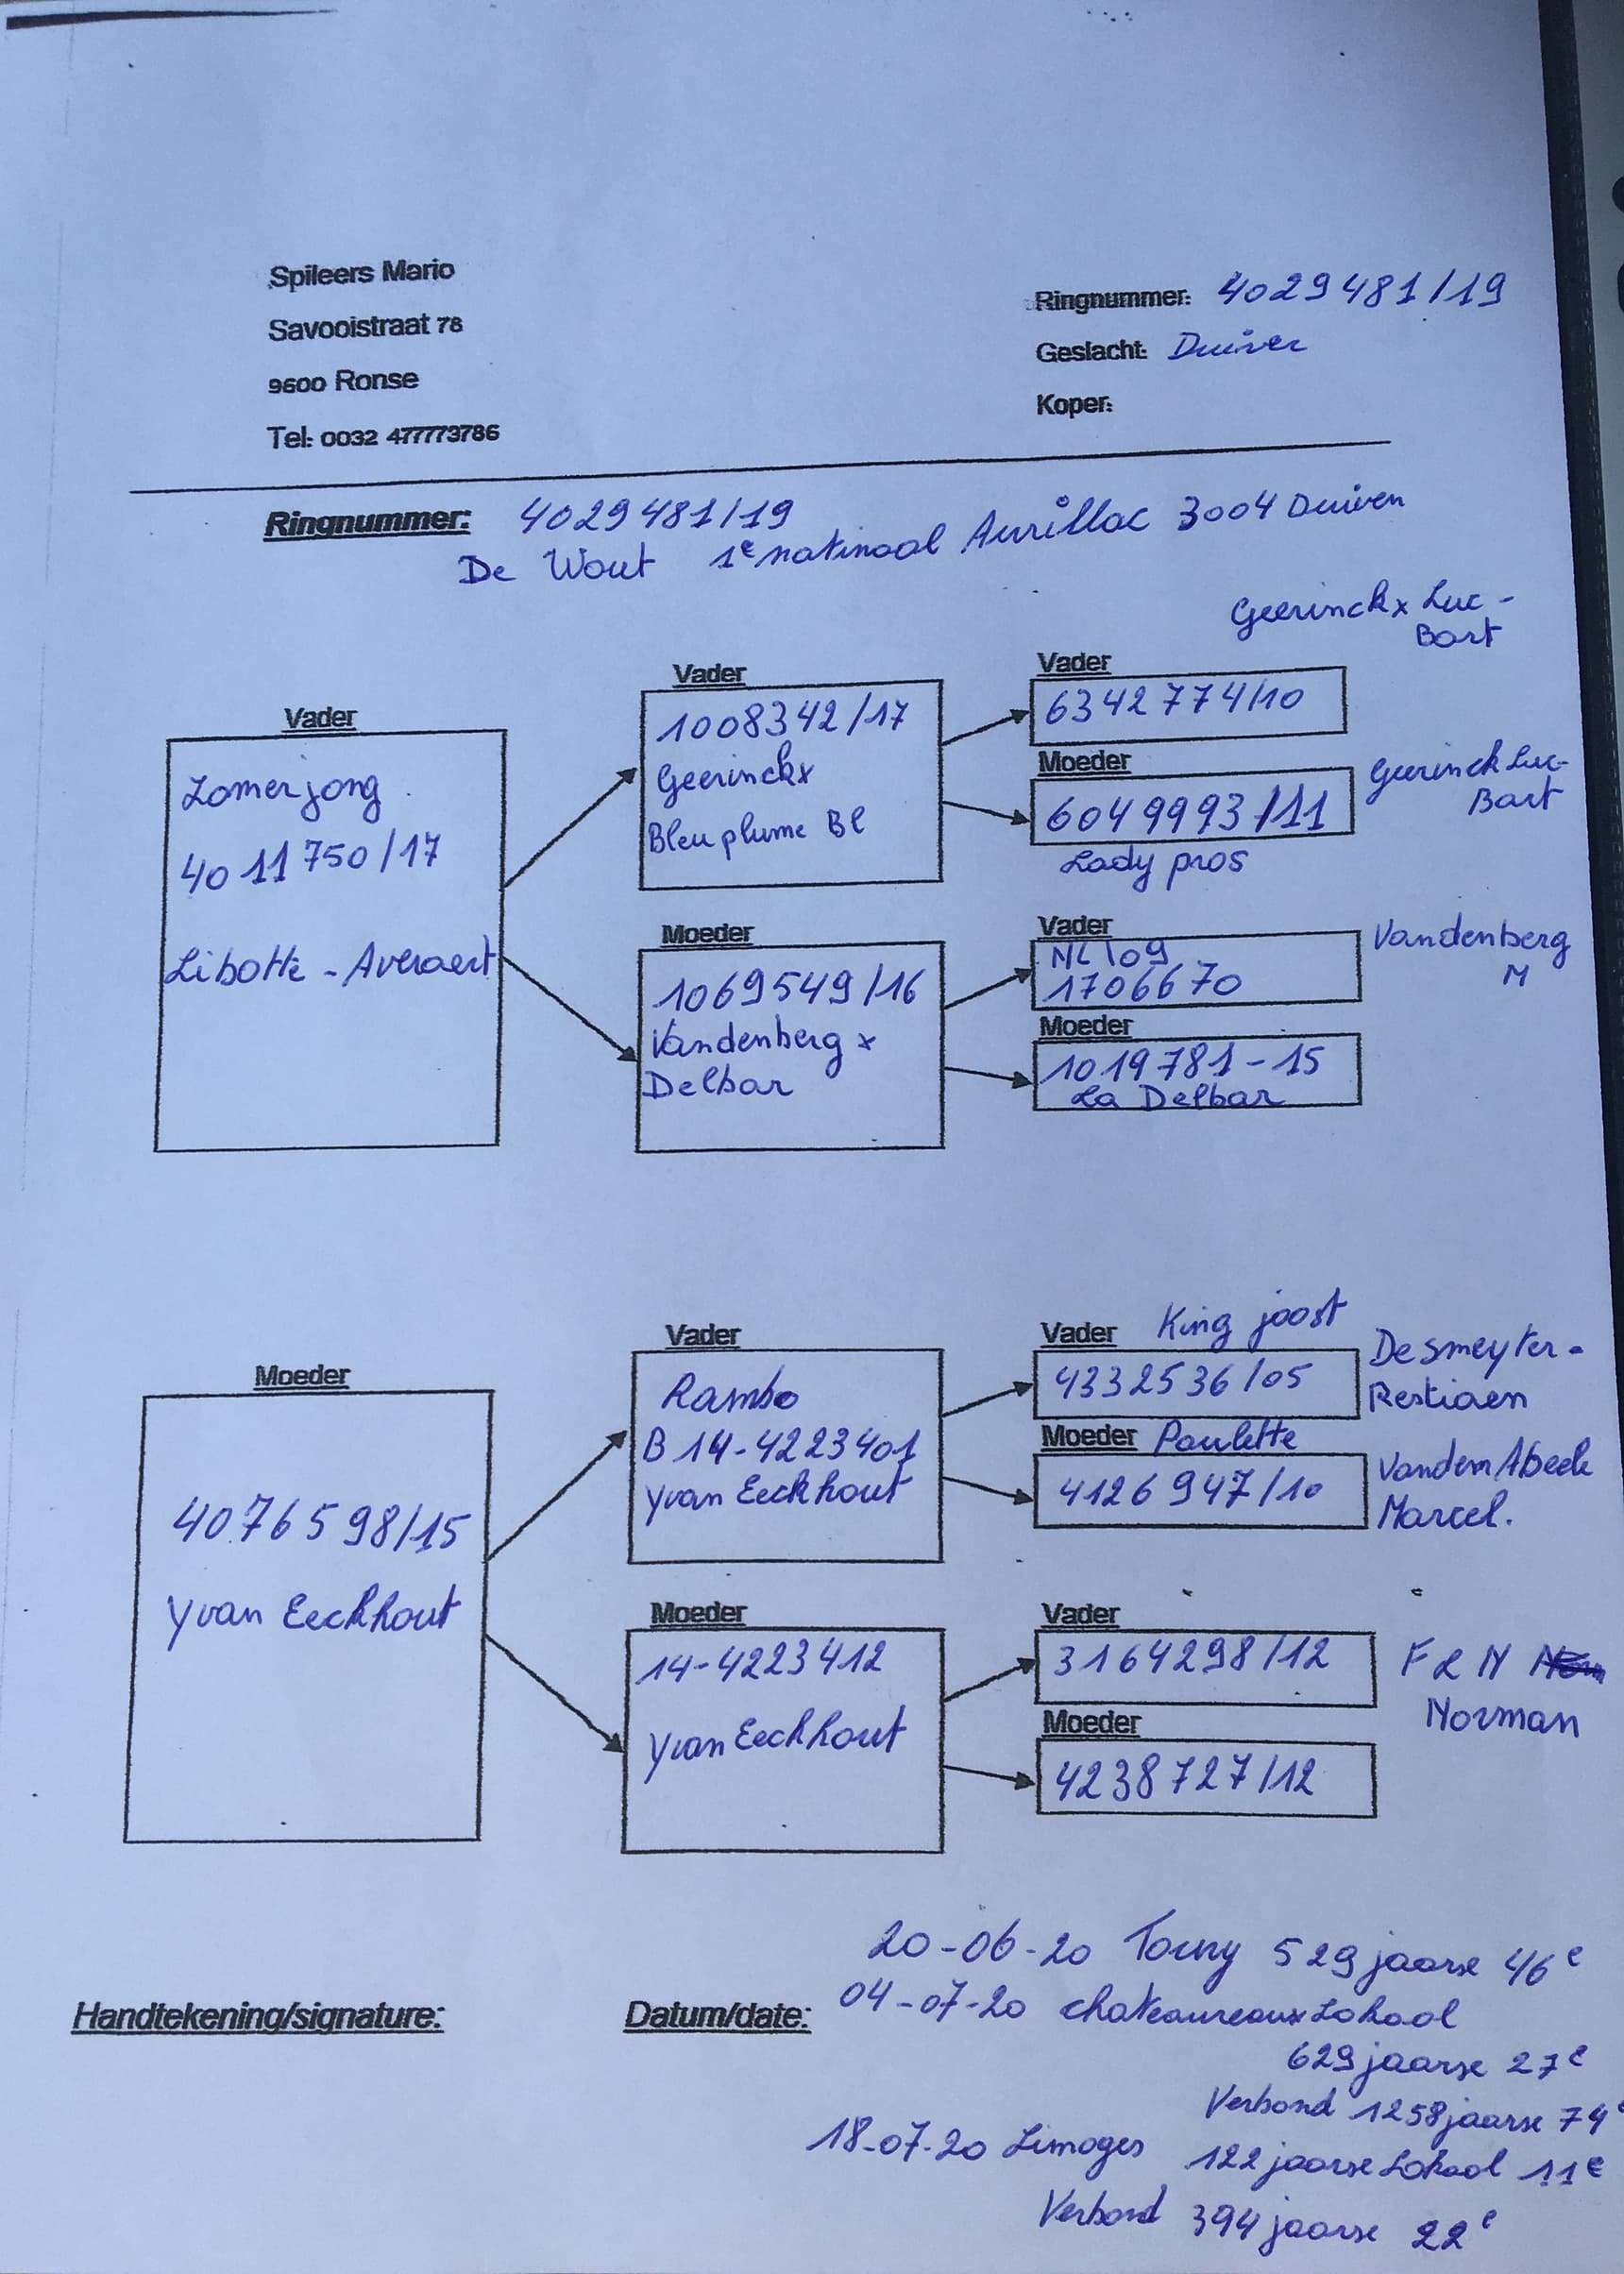 Spileers Mario
Savooistraat 78
9600 Ronse
Tel: 0032 477773786
Ringnummer: 4029481/19
Geslacht: Duiver
Koper:
Ringnummer: 4029481/19
De Wout 1e natinaal Aurillac 3004 Duiven
Vader
Zomerjong
4011750/17
Libotte - Averaert
Vader
1008342/17
Geerinckx
Bleu plume Bl
Moeder
1069549/16
Vandenberg x
Delbar
Geerinckx Luc -
Bart
Vader
6342774/10
Moeder
6049993/11
Geerinck Luc-
Bart
Lady pros
Vader
NL 109
1706670
Vandenberg
M
Moeder
1019781-15
La Delbar
Moeder
4076598/15
Yvan Eeckhout
Vader
Rambo
B14-4223401
Yvan Eeckhout
Moeder
14-4223412
Yvan Eeckhout
Vader King joost
4332536/05
De smeyter-
Restiaen
Moeder Paulette
4126947/10
Vandem Abeele
Marcel.
Vader
3164298/12
F & N
Norman
Moeder
4238727/12
Handtekening/signature:
Datum/date:
20-06-20 Toury 529 jaarse 46e
04-07-20 chateaureaux Lokaal
629 jaarse 27e
Verbond 1258 jaarse 74e
18-07-20 Limoges 122 jaarse Lokaal 11e
Verbond 394 jaarse 22e